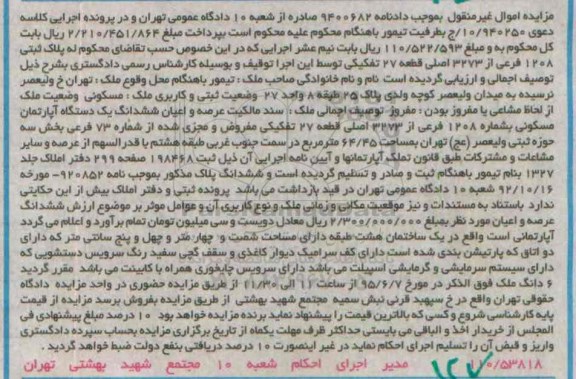 مزایده اموال غیرمنقول بموجب دادنامه ۹۴۰۰۶۸۲ صادره از شعبه ۱۰ دادگاه عمومی تهران و در پرونده اجرایی کلاسه
دعوی ۹۴۰۲۵۰/۱۰/ج بطرفیت تیمور باهنگام محکوم علیه محکوم است بپرداخت مبلغ ۲/۲۱۰/۴۵۱/۸۶۴ ریال بابت
کل محکوم به و مبلغ ۱۱۰/۵۲۲/۵۹۳ ریال بابت نیم عشر اجرایی که در این خصوص حسب تقاضای محکوم له پلاک ثبتی
۱۲۰۸ فرعی از ۳۲۷۳ اصلی قطعه ۲۷ تفکیکی توسط این اجرا توقیف و بوسیله کارشناس رسمی دادگستری بشرح ذیل
توصیف اجمالی و ارزیابی گردیده است نام و نام خانوادگی صاحب ملک : تیمور باهنگام محل وقوع ملک : تهران خ ولیعصر
نرسیده به میدان ولیعصر کوچه ولدی پلاک ۲۵ طبقه ۸ واحد ۲۷ وضعیت ثبتی و کاربری ملک : مسکونی وضعیت ملک
از لحاظ مشاعی یا مفروز بودن : مفروز توصیف اجمالی ملک : سند مالکیت عرصه و اعیان ششدانگ یک دستگاه آپارتمان
مسکونی بشماره ۱۲۰۸ فرعی از ۳۲۷۳ اصلی قطعه ۲۷ تفکیکی مفروض و مجزی شده از شماره ۷۳ فرعی بخش سه
حوزه ثبتی ولیعصر (عج) تهران بمساحت ۶۴/۴۵ مترمربع در سمت جنوب غربی طبقه هشتم با قدرالسهم از عرصه و سایر
مشاعات و مشترکات طبق قانون تملک آپارتمانها و آیین نامه اجرایی آن ذیل ثبت ۱۹۸۴۶۸ صفحه ۲۹۹ دفتر املاک جلد
۱۳۲۷ بنام تیمور باهنگام ثبت و صادر و تسلیم گردیده است و ششدانگ پلاک مذکور بموجب نامه ۹۲۰۸۵۲– مورخه
۹۲/۱۰/۱۶ شعبه ۱۰ دادگاه عمومی تهران در قید بازداشت می باشد پرونده ثبتی و دفتر املاک بیش از این حکایتی
ندارد باستناد به مستندات و نیز موقعیت مکانی و زمانی ملک و نوع کاربری آن و عوامل موثر بر موضوع ارزش ششدانگ
عرصه و اعیان مورد نظر بمبلغ ۲/۳۰۰/۰۰۰/۰۰۰ ریال معادل دویست و سی میلیون تومان تمام برآورد و اعلام می گردد
آپارتمانی است واقع در یک ساختمان هشت طبقه دارای مساحت شصت و چهار متر و چهل و پنج سانتی متر که دارای
دو اتاق که پارتیشن بندی شده است دارای کف سرامیک دیوار کاغذی و سقف گچی سفید رنگ سرویس دستشویی که
دارای سیستم سرمایشی و گرمایشی اسپیلت می باشد دارای سرویس چایخوری همراه با کابینت می باشد مقرر گردید
۶ دانگ ملک فوق الذکر در مورخ ۹۵/۶/۷ از ساعت ۱۱ الی ۱۱/۳۰ از طریق مزایده حضوری در واحد مزایده دادگاه
حقوقی تهران واقع در خ سپهبد قرنی نبش سمیه مجتمع شهید بهشتی از طریق مزایده بفروش برسد مزایده از قیمت
پایه کارشناسی شروع و کسی که بالاترین قیمت را پیشنهاد نماید برنده مزایده خواهد بود ۱۰ درصد مبلغ پیشنهادی فی
المجلس از خریدار اخذ و الباقی می بایستی حداکثر ظرف مهلت یکماه از تاریخ برگزاری مزایده بحساب سپرده دادگستری
واریز و قبض آن را تسلیم اجرای احکام نماید در غیر اینصورت ۱۰ درصد دریافتی بنفع دولت ضبط خواهد گردید .
۱۱۰/۵۳۸۱۸ مدیر اجرای احکام شعبه ۱۰ مجتمع شهید بهشتی تهران